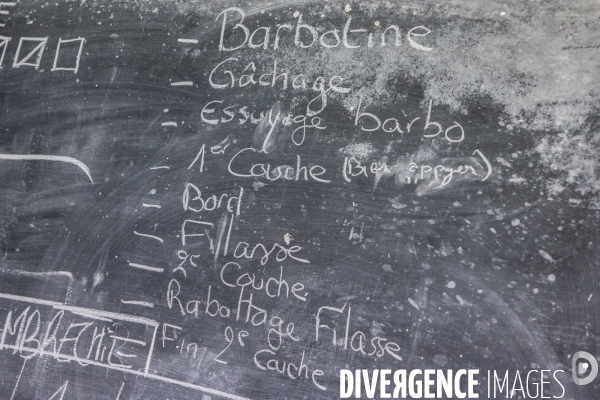 - Barbotine
- Gâchage
- Essuyage barbo
- 1er Couche (Bien appuyer)
- Bord
- Filasse
- 2e Couche
- Rabattage Filasse
Fini 2e Couche
DIVERGENCE IMAGES